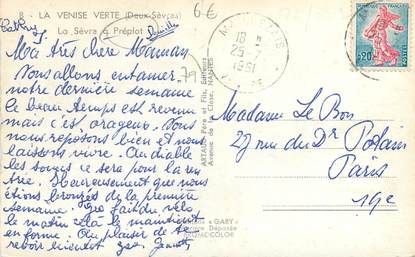 8 - LA VENISE VERTE (Deux-Sèvres)
La Sèvre à Préplot
6€
79
Ma très chère Maman
Vous allons entamer
notre dernière semaine
le beau temps est revenu
mais c'est orageux. Nous
nous reposons bien et nous
laissons vivre. Au diable
les soucis ce sera pour la ren
trée. Heureusement que nous
étions bronzés de la première
semaine. Geo fait du vélo
le matin cela le maintient
en forme. Au plaisir de te
revoir bientôt Geo Jeannette
ARTAUD Père et Fils, Editeurs
Avenue de la Close, NANTES
"GABY"
Marque Déposée
18 H
25-7
1961
0,20
Madame Le Bon
27 rue du Dr Potain
Paris
19e